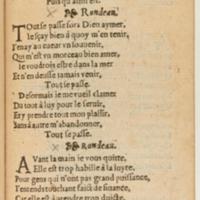 Puis qu'ainsi est.
Rondeau.
Tout se passe fors Dieu aymer,
Ie sçay bien à quoy m'en tenir,
I'enay au cueur vn souuenir,
Qui m'est vn morceau bien amer,
Ie voudrois estre dans la mer
Et n'en deusse iamais venir,
Tout se passe.
Desormais ie me vueil clamer
Du tout à luy pour le seruir,
Et y prendre tout mon plaisir,
Sans à autre m'abandonner,
Tout se passe.
Rondeau.
Auant la main ie vous quitte,
Elle est trop habille à la luyte,
Pour gens qui n'ont pas grand puissance,
I'entends touchant faict de finance,
Car elle est à prendre trop duicte.